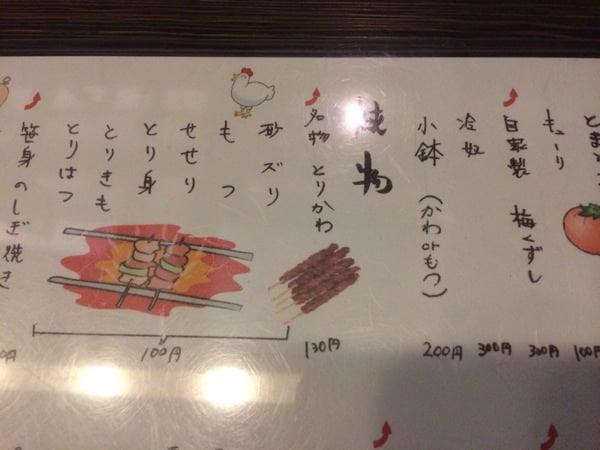 とまと
きゅーり
自家製 梅くずし
冷奴
小鉢 (かわorもつ)
焼物
名物 とりかわ
砂ズリ
もつ
せせり
とり身
とりきも
とりはつ
笹身のしぎ焼き
100円
300円
300円
200円
130円
100円